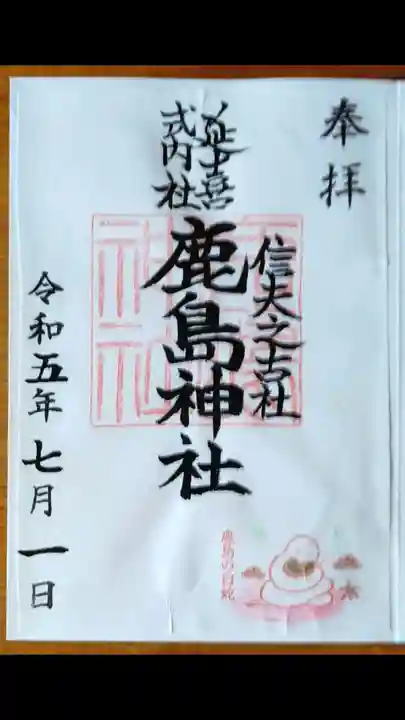 奉拝
信夫之古社
延喜
式内社
鹿島神社
令和五年七月一日
鹿島の白蛇